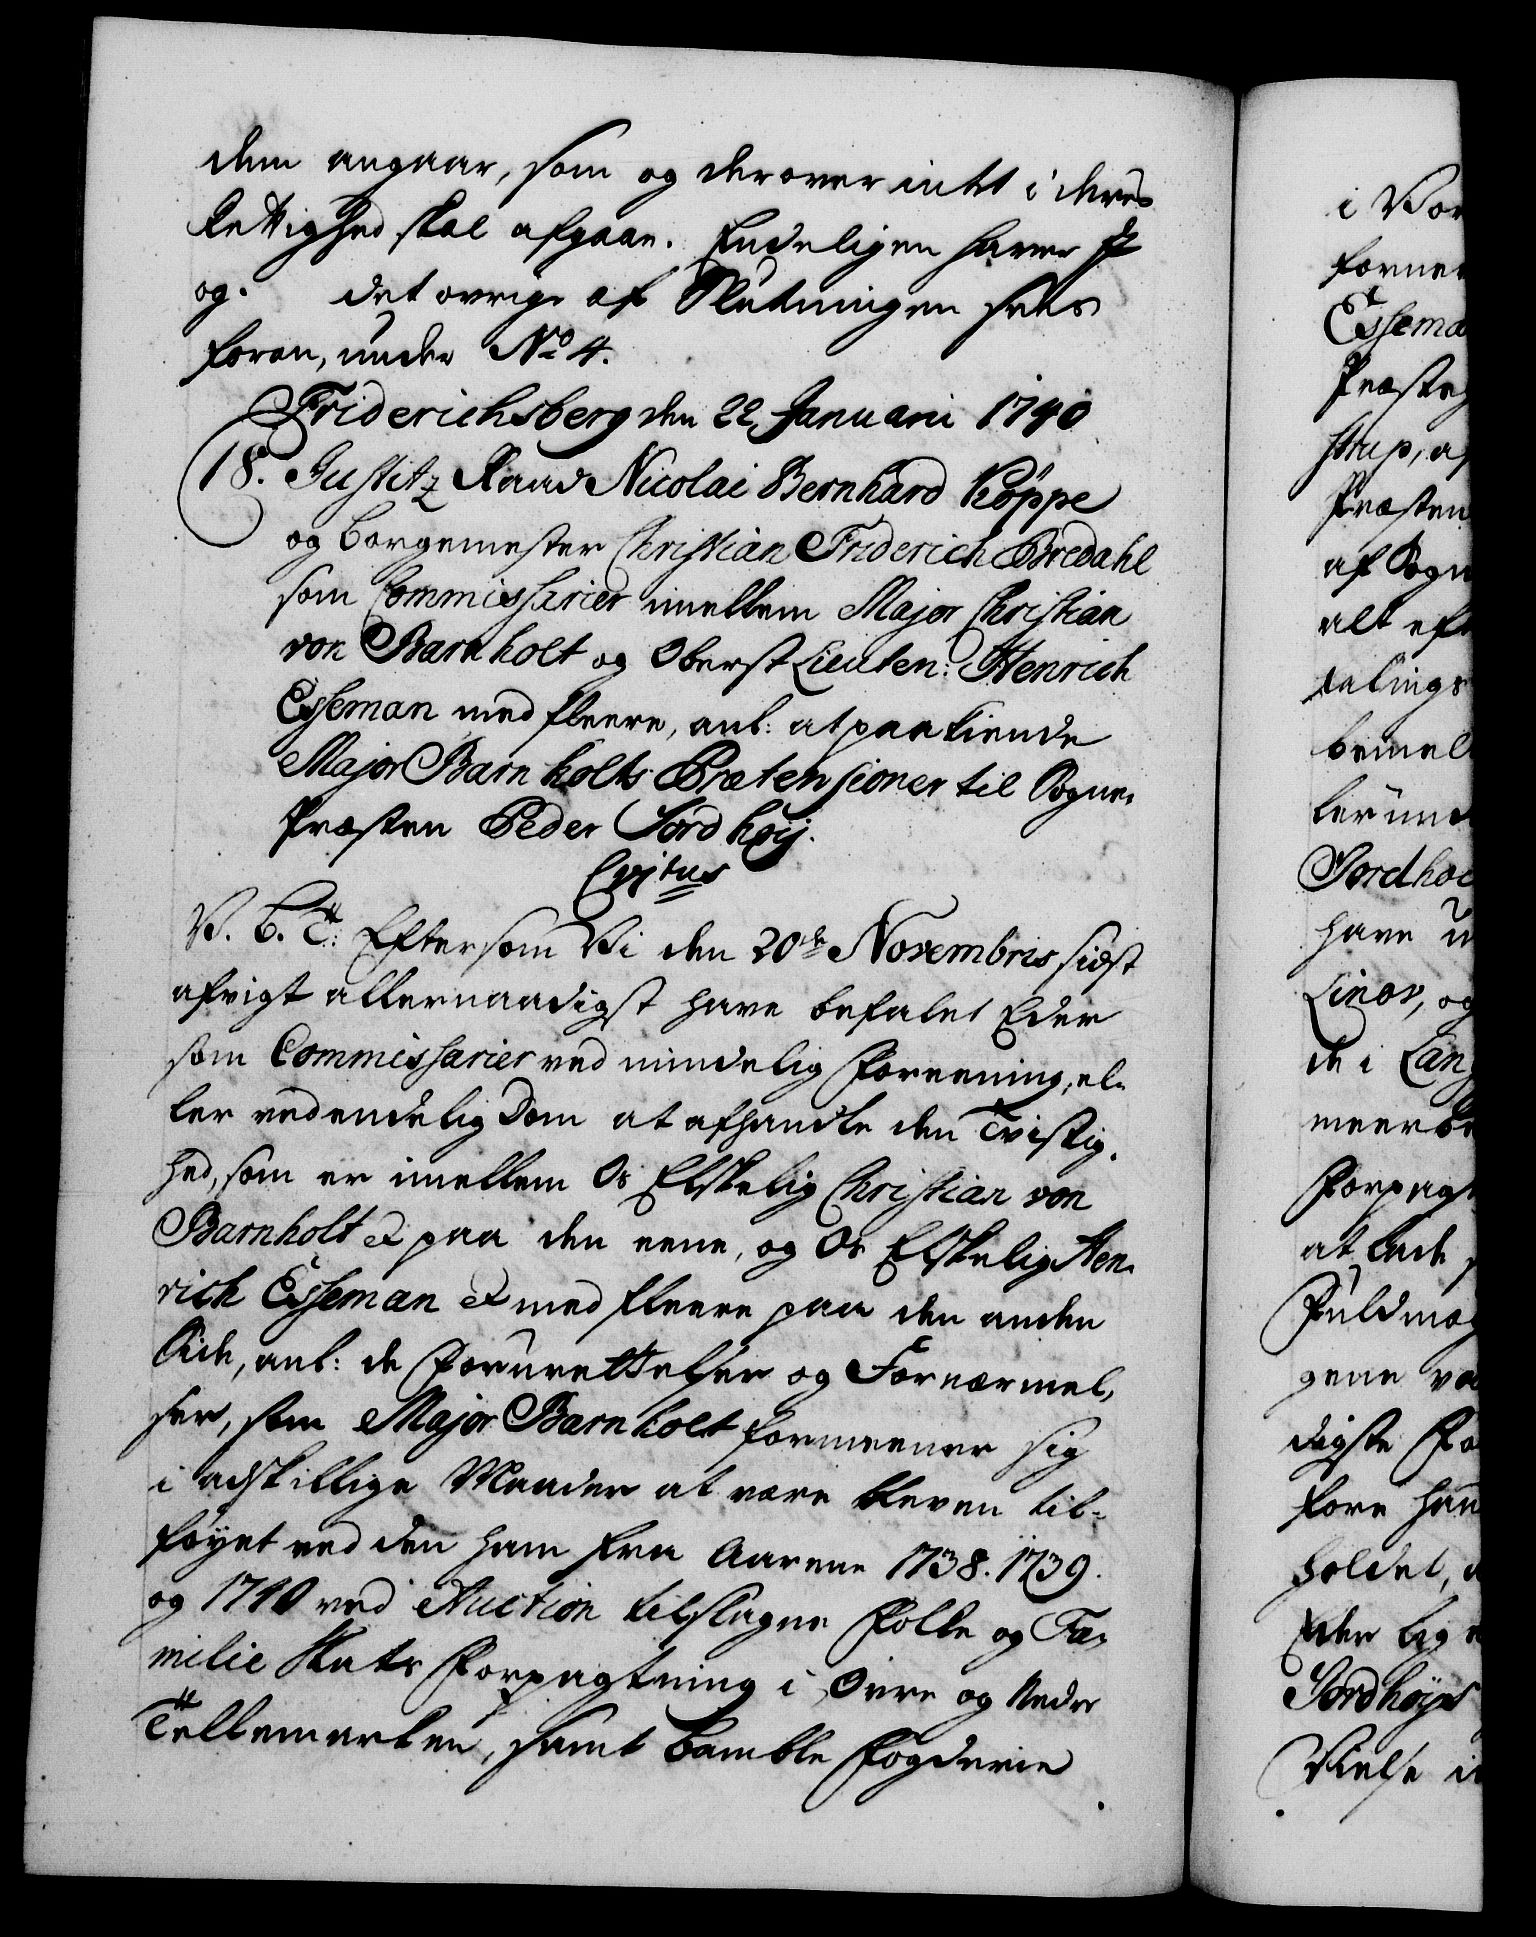 dem angaar, som og derover intet i deres
Rettighed skal afgaae. Endeligen haver I
og. det øvrige af Slutningen sees
foran, under No 4.
Friderichsberg den 22 Januarii 1740
18. Justitz Raad Nicolai Bernhard Køppe
og Borgemester Christian Friderich Bredahl
som Commissarier imellem Major Christian
von Barnholt og Oberst Lieuten: Henrich
Esseman med fleere, anl: at paakiende
Major Barnholts Prætensioner til Sogne-
Præsten Peder Jordhøy.
V. G. T: Eftersom Vi den 20de Novembris sidst
afvigt allernaadigst have befalet Eder
som Commissarier ved mindelig Foreening, el-
ler ved endelig Dom at afhandle den Tvistig-
hed, som er imellem Os Elskelig Christian von
Barnholt et paa den eene, og Os Elskelig Hen-
rich Esseman et med fleere paa den anden
Side, anl: de Forurettelser og Fornærmel-
ser, som Major Barnholt formeener sig
i adskillige Maader at være bleven til-
føyet ved den ham fra Aarene 1738. 1739.
og 1740 ved Auction tilslagne Folke og Fa-
milie Skats Forpagtning i Øvre og Nedre
Tellemarken, samt Bamble Fogderie
i Vor
forne
Essema
Præste
strup, a
Præsten
af Sogn
alt eft
talings
bemel
ler und
Jordhoe
have
Linor, og
de i Lan
meerbe
Forpagt
at lade
Fuldmæg
gene
digste Fo
fore han
holdet,
Eder lig
Jordhøys